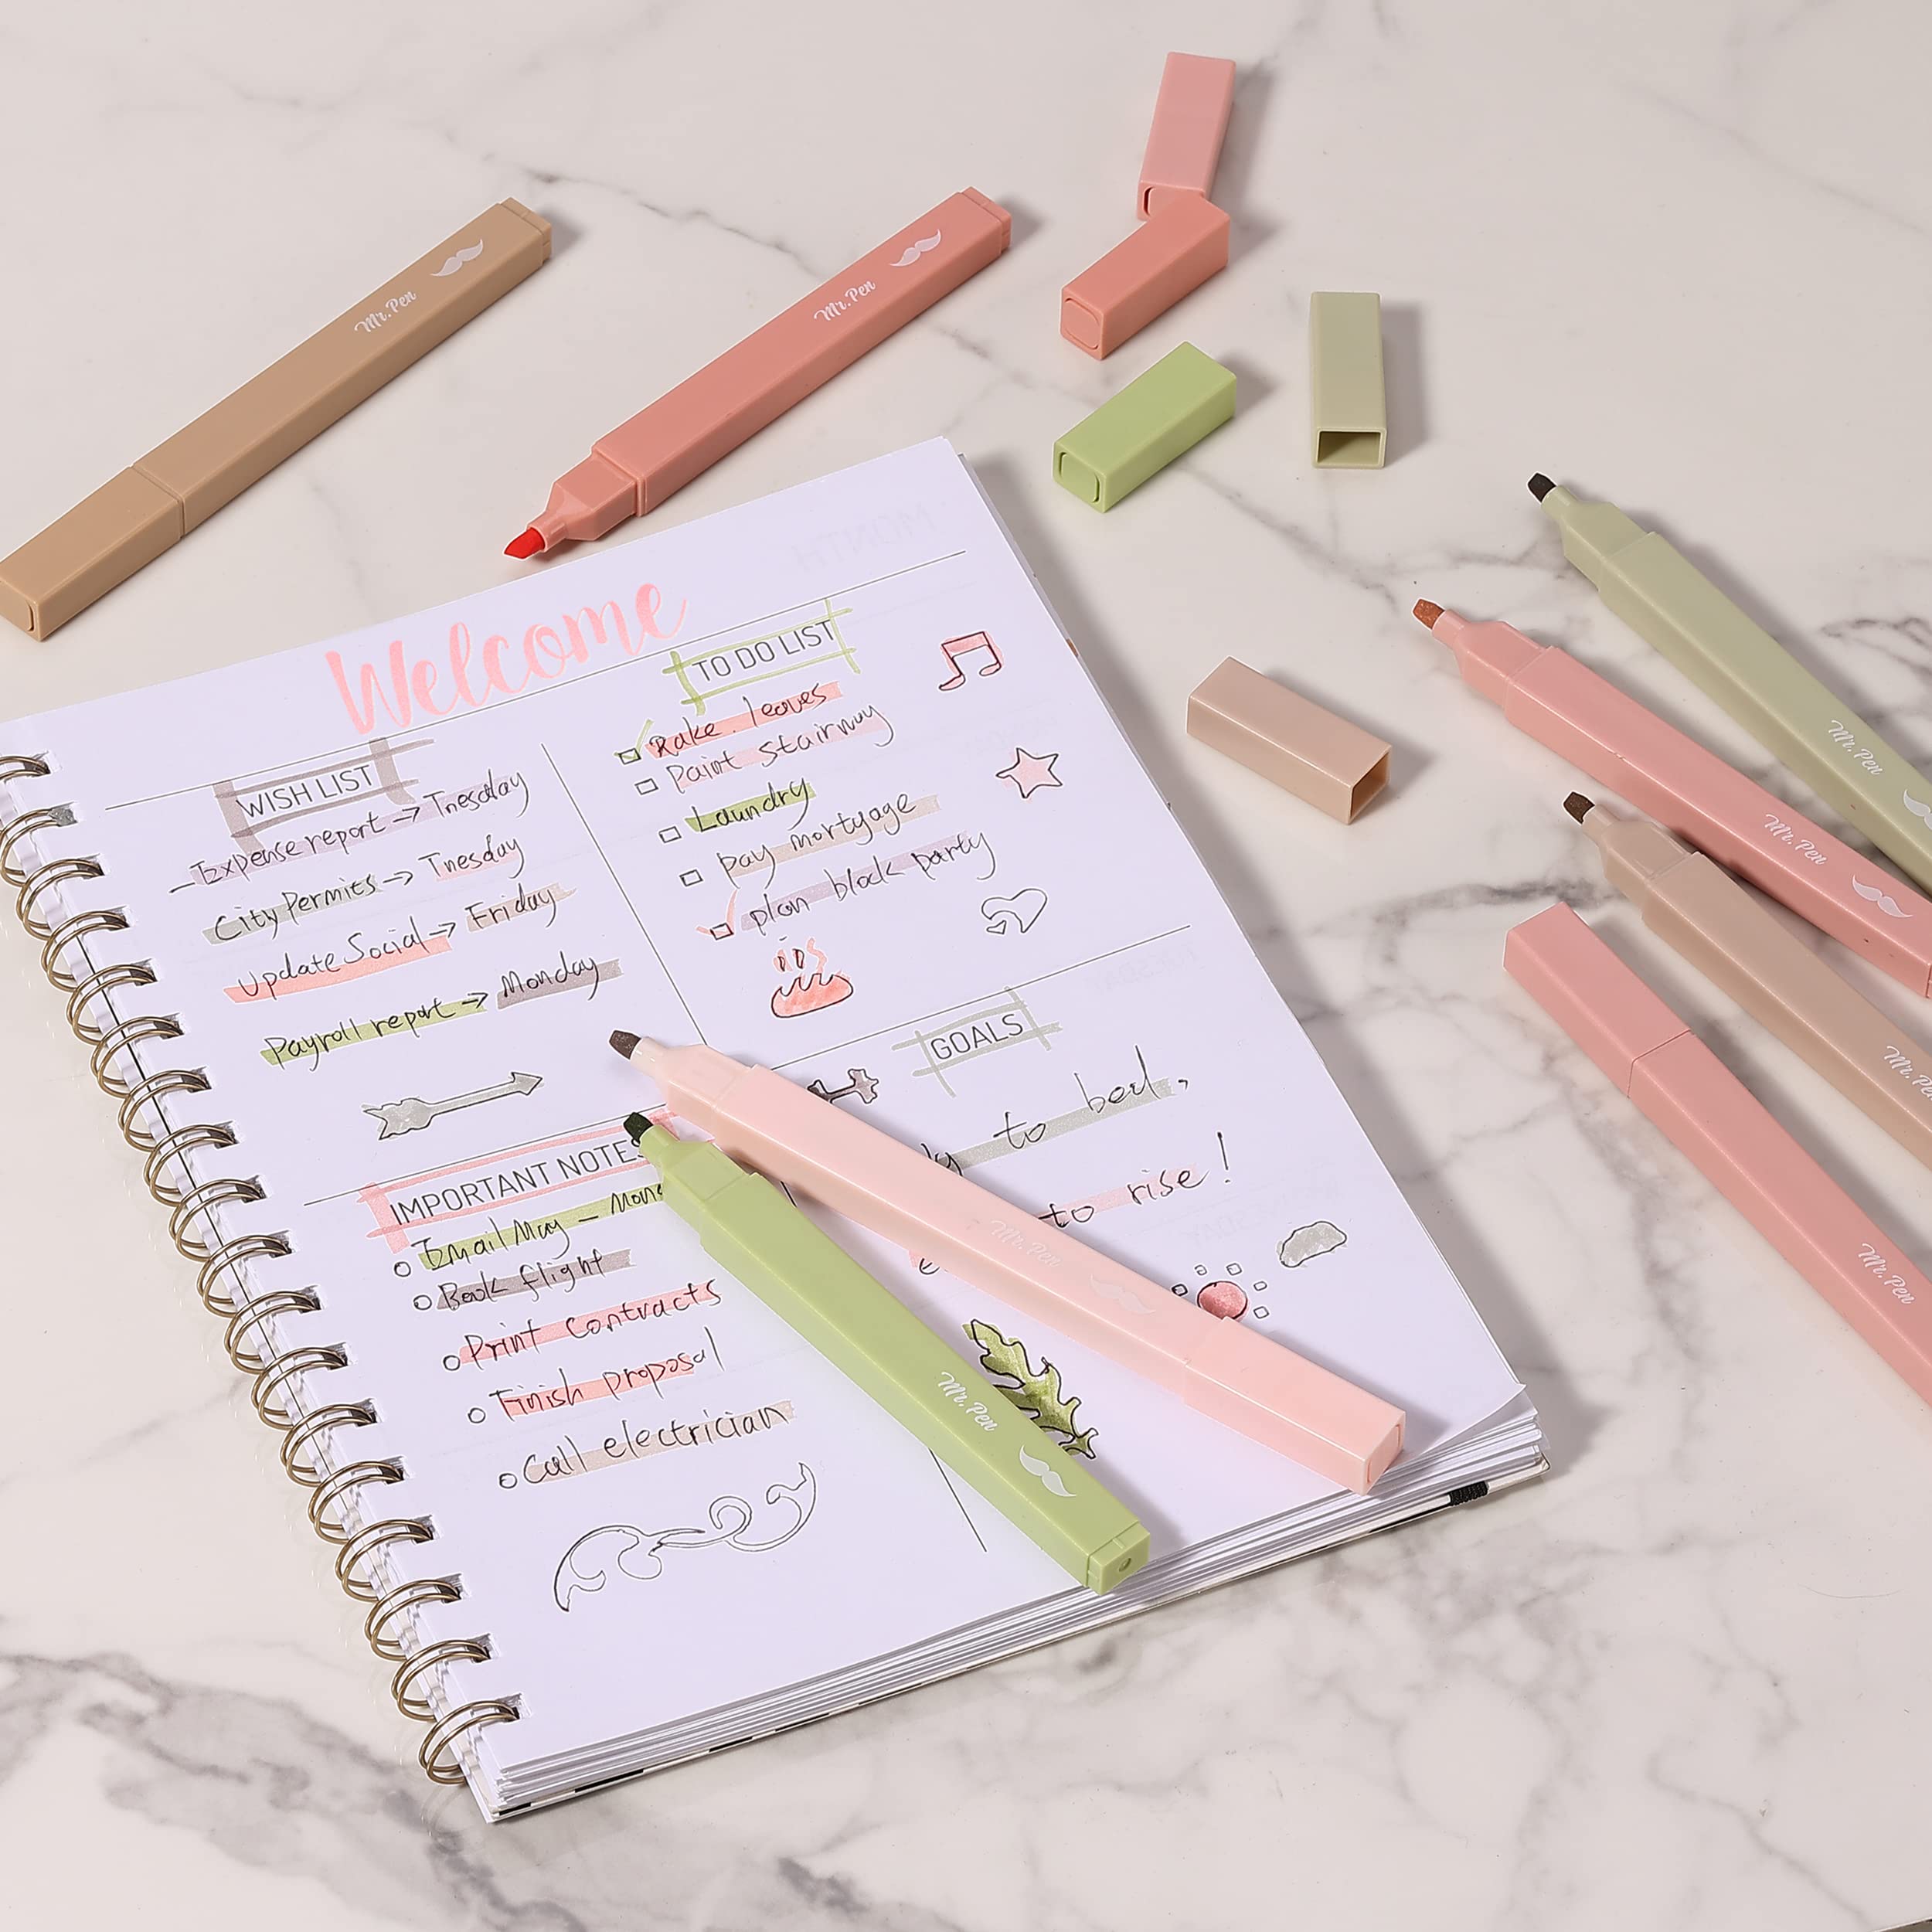 Mr. Pen
Mr. Pen
Welcome
WISH LIST
Expense report → Tnesday
City Permits → Tnesday
Update Social → Friday
Payroll report → Monday
TO DO LIST
Rake leaves
Paint Stairway
Laundry
pay mortgage
plan block party
GOALS
to bed,
to rise!
IMPORTANT NOTES
Email May –
Book flight
Print Contracts
Finish proposal
Call electrician
Mr. Pen
Mr. Pen
Mr. Pen
Mr. Pen
Mr. Pen
Mr. Pen
MONTH